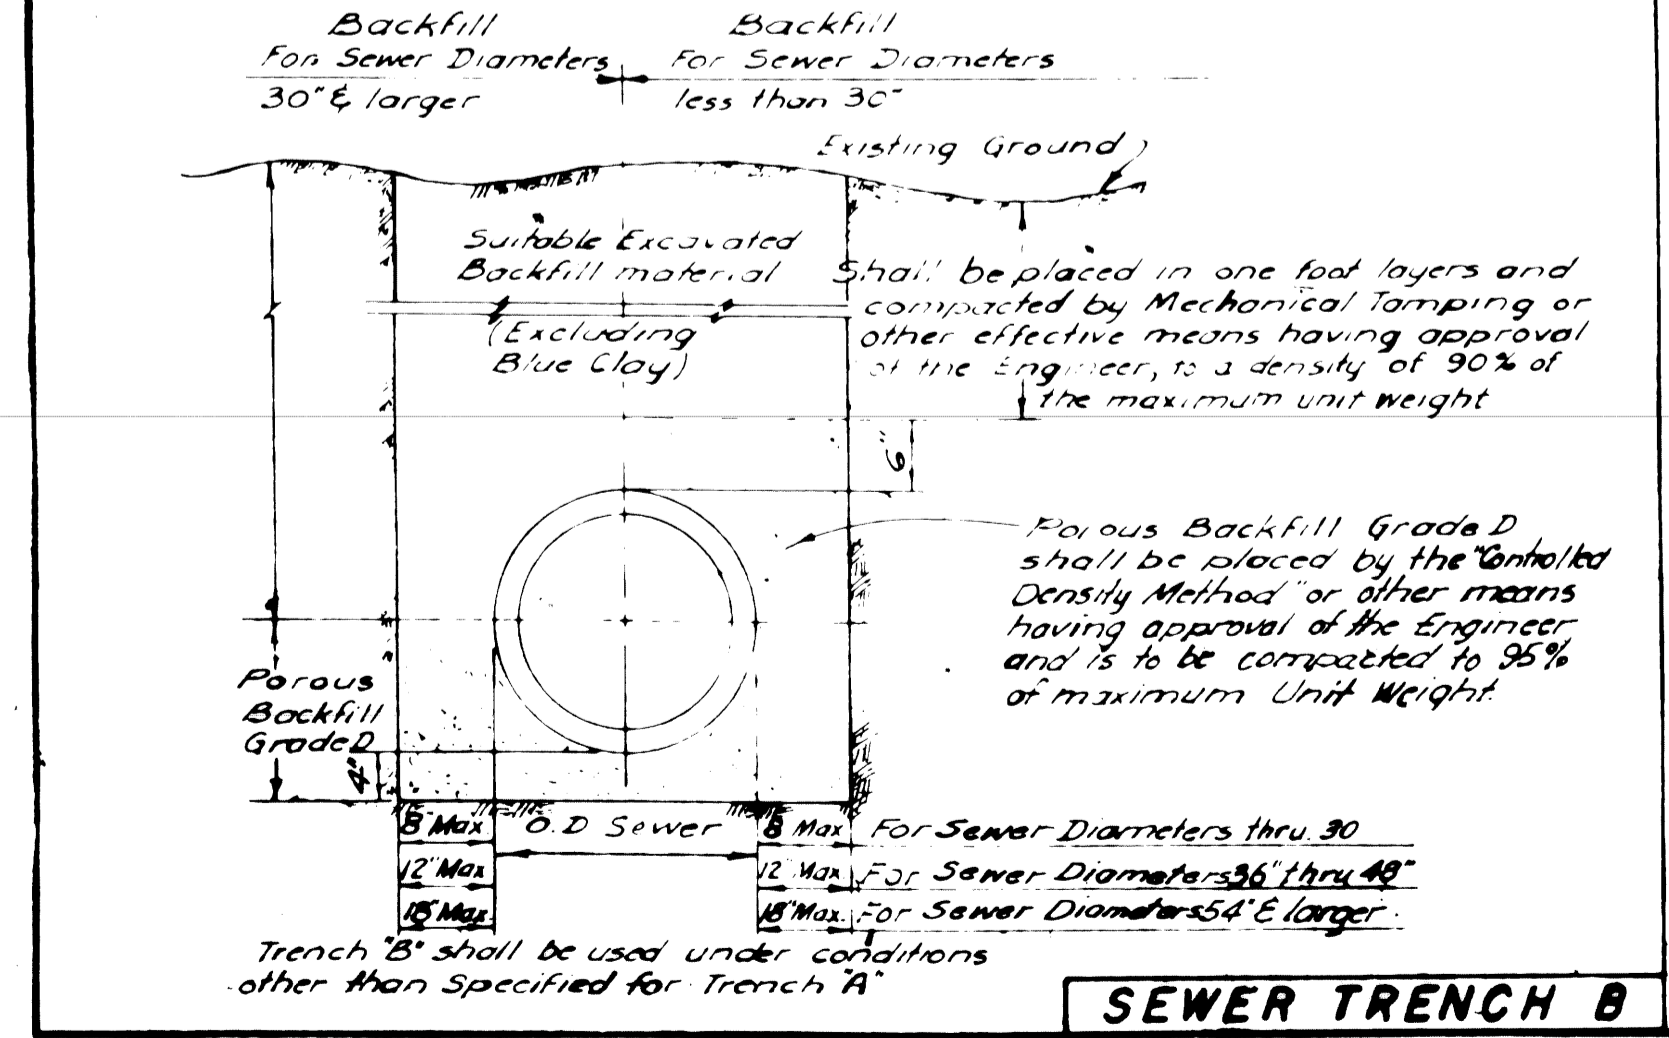 Backfill
For Sewer Diameters
30" & larger
Backfill
For Sewer Diameters
less than 30"
Existing Ground
Suitable Excavated
Backfill material
(Excluding
Blue Clay)
Shall be placed in one foot layers and
compacted by Mechanical Tamping or
other effective means having approval
of the Engineer, to a density of 90% of
the maximum unit weight
6"
Porous Backfill Grade D
shall be placed by the "Controlled
Density Method" or other means
having approval of the Engineer
and is to be compacted to 95%
of maximum Unit Weight.
Porous
Backfill
Grade D
4"
8" Max O.D Sewer 8 Max For Sewer Diameters thru. 30
12" Max 12" Max For Sewer Diameters 36" thru 48"
18" Max. 18" Max. For Sewer Diameters 54" & larger.
Trench "B" shall be used under conditions
other than Specified for Trench "A"
SEWER TRENCH B